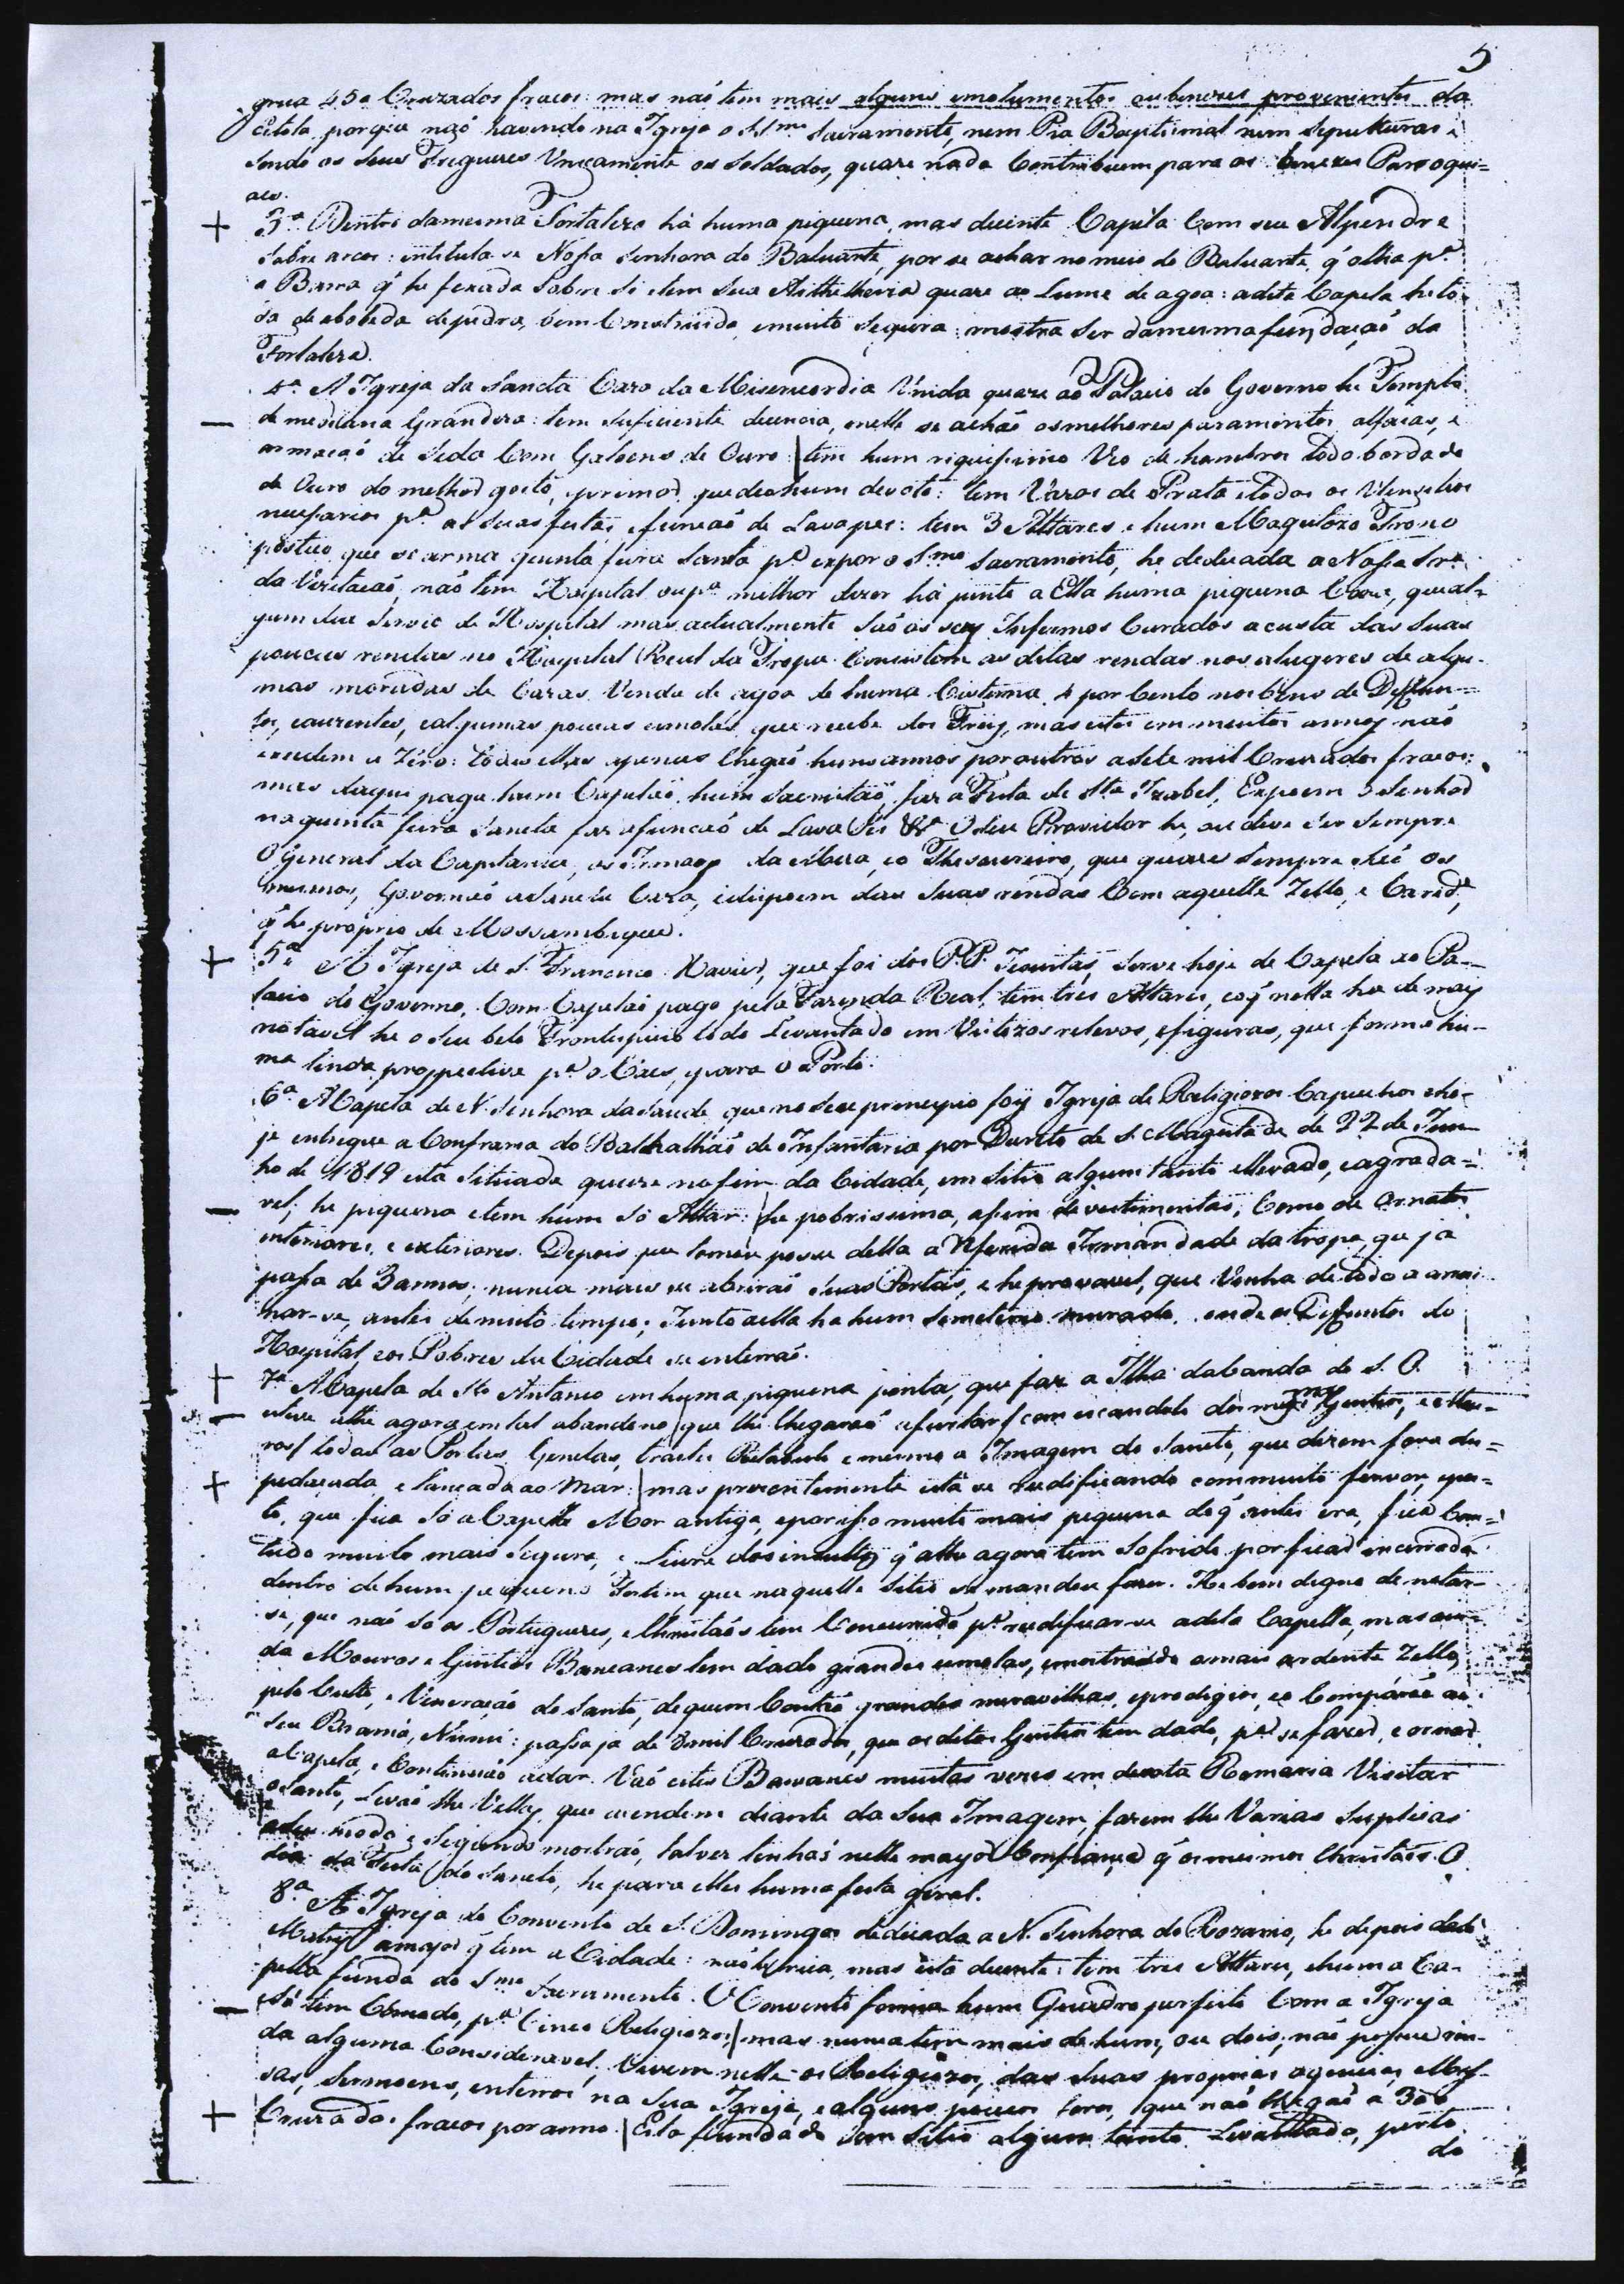 5
grua 450 Cruzados fracos: mas naõ tem mais alguns emolumentos ou benezes provenientes da
Estola, porque naõ havendo na Igreja o SSmo Sacramento, nem Pia Baptismal nem sepulturas e
sendo os seus Freguezes Unicamente os soldados, quaze nada Contribuem para os benezes Parroqui=
aes.
+ 3ª Dentro damesma Fortaleza há huma piquena, mas decente Capéla Com seu Alpendre
sobre arcos: intitula se Nossa Senhora do Baluarte, por se achar no meio do Baluarte, q̃ olha pª
a Barra q̃ he fexada sobre si e tem sua Arthelheria quaze ao Lume de agoa: a dita Capela he to-
da de aboboda de pedra, bem Construida, e muito segura: mostra ser damesma fundaçaõ da
Fortaleza.
4ª A Igreja da Sancta Caza da Misericordia Unida quaze ao Palacio do Governo he Templo
— de mediana Grandeza: tem suficiente decencia, e nelle se achaõ os melhores paramentos alfaias, e
armaçaõ de seda Com Galoens de Ouro: | tem hum riquissimo Veo de hombros todo bordado
de Ouro do melhor gosto, e primor, que deo hum devoto: tem Vazos de Prata e todos os Utensilios
necessarios pª as suas festas, e funçaõ de Lavapes: tem 3 Altares e hum Magestozo Trono
postiço que se arma quinta feira Santa pª expor o Smo Sacramento, he dedicada a Nossa Srª
da Vezitaçaõ, naõ tem Hospital ou pª milhor dizer há junto a Ella huma piquena Caza, que al-
gum dia servio de Hospital mas actualmente saõ os seus Infermos Curados a custa das suas
poucas rendas no Hospital Real da Tropa. Consistem as ditas rendas nos alugeres de algu-
mas moradas de Cazas. Venda de agoa de huma Cisterna, 4 por Cento nos bens de Deffun=
tos, e auzentes, e algumas poucas esmolas que recebe dos Fieis, mas estes em muitos annos naõ
excedem a Zéro: todas ellas apenas Chegaõ huns annos por outros a sete mil Cruzados fracos:
mas daqui paga hum Capelaõ, hum sacristaõ, faz a Festa de Sta Izabel, Expoem o Senhor
na quinta feira Sancta faz a funcaõ de Lava Pés &ª O seu Provedor he, ou deve ser sempre
O General da Capitania, os Irmaos da Meza, e o Thesoureiro, que quazi sempre saõ os
mesmos, Governaõ a Sancta Caza, e dispoem das suas rendas Com aquelle Zello, e Caride
q̃ he proprio de Mossambique.
+ 5ª A Igreja de S. Francisco Xavier, que foi dos P.P. Jesuitas, serve hoje de Capela ao Pa-
lacio do Governo, Com Capelaõ pago pela Fazenda Real, tem tres Altares, e o q̃ nella ha de mais
notavel he o seu belo Frontespicio todo Levantado em Vistozos relevos, e figuras, que forma hu-
ma linda prospectiva pª o Caes, e para o Porto.
6ª A Capela de N. Senhora da Saude, que no seu principio foy Igreja de Religiozos Capuchos e ho-
je entregue a Confraria do Batalhaõ de Infantaria por Decreto de S. Magestade de 22 de Jun-
ho de 1819 está Situada quaze no fim da Cidade, em Sitio algum tanto ellevado, e agrada=
— vel; he piquena e tem hum só Altar: | he pobrissima, asim de vestimentas, Como de ornatos
interiores, e exteriores. Depois que tomou posse della a referida Irmandade da tropa, que já
passa de 3 annos, nunca mais se abriraõ suas Portas, e he provavel, que Venha de todo a arrui-
nar-se, antes de muito tempo; Junto aella ha hum Semeterio murado, onde os Difuntos do
Hospital, e os Pobres da Cidade se enterraõ.
+ 7ª A Capela de Sto Antonio em huma piquena ponta, que faz a Ilha dabanda de S. O.
— esteve athe agora em tal abandono, | que lhe Chegaraõ a furtar (com escandalo dos mesmos Gentios, e Mou-
ros) todas as Portas, Genelas, trastes Retabulo e mesmo a Imagem do Sancto, que dizem fora des=
+ pedaçada, e lançada ao Mar: | mas prezentemente está se redificando com muito fervor, e pos=
to, que fica só a Capella Mor antiga, e por isso muito mais piquena do q̃ antes era, fica Com=
tudo muito mais segura, e livre dos insultos q̃ athe agora tem sofrido, por ficar encerrada
dentro de hum pequeno Fortim, que naquelle Sitio se mandou fazer. He bem digno de notar-
se, que naõ só os Portuguezes, e Christaõs tem Concorrido pª redificar-se a dita Capella, mas ain-
da Mouros e Gentios Baneanes tem dado grandes esmolas, e mostrado o mais ardente Zello,
pelo Culto, e Veneraçaõ do Santo, de quem Contaõ grandes maravilhas, e prodigios, e o Comparaõ ao
seu Bramá, : passa já de mil Cruzados, que os ditos Gentios tem dado, pª se fazer, e ornar
a Capela, e Continuaõ a dar. Vaõ estes Baneanes muitas vezes em devota Romaria Vizitar
o Santo, Levaõ lhe Vellas, que acendem diante da sua Imagem, fazem lhe Varias suplicas
a seu modo, e segundo mostraõ, talvez tenhaõ nelle mayor Confiança q̃ os mesmos Christaõs. O
dia da Festa do Sancto, he para elles huma festa geral.
8.ª A Igreja do Convento de S. Domingos dedicada a N. Senhora do Rozario, he depois da da
Matriz a mayor q̃ tem a Cidade: naõ he rica, mas está decente: tem tres Altares, e huma Ca-
pella funda do Smo Sacramento. O Convento forma hum Quadro perfeito Com a Igreja
— só tem Cómodo, pª Cinco Religiozos, | mas nunca tem mais de hum, ou dois; naõ possue ren-
da alguma Consideravel, Vivem nelle os Religiozos, das suas proprias agencias Mis-
sas, Sermoens, enterros na sua Igreja, e alguns poucos foros, que naõ chegaõ a 300
+ Cruzados fracos por anno. | Está fundado em Sitio algum tanto Levantado, perto
do